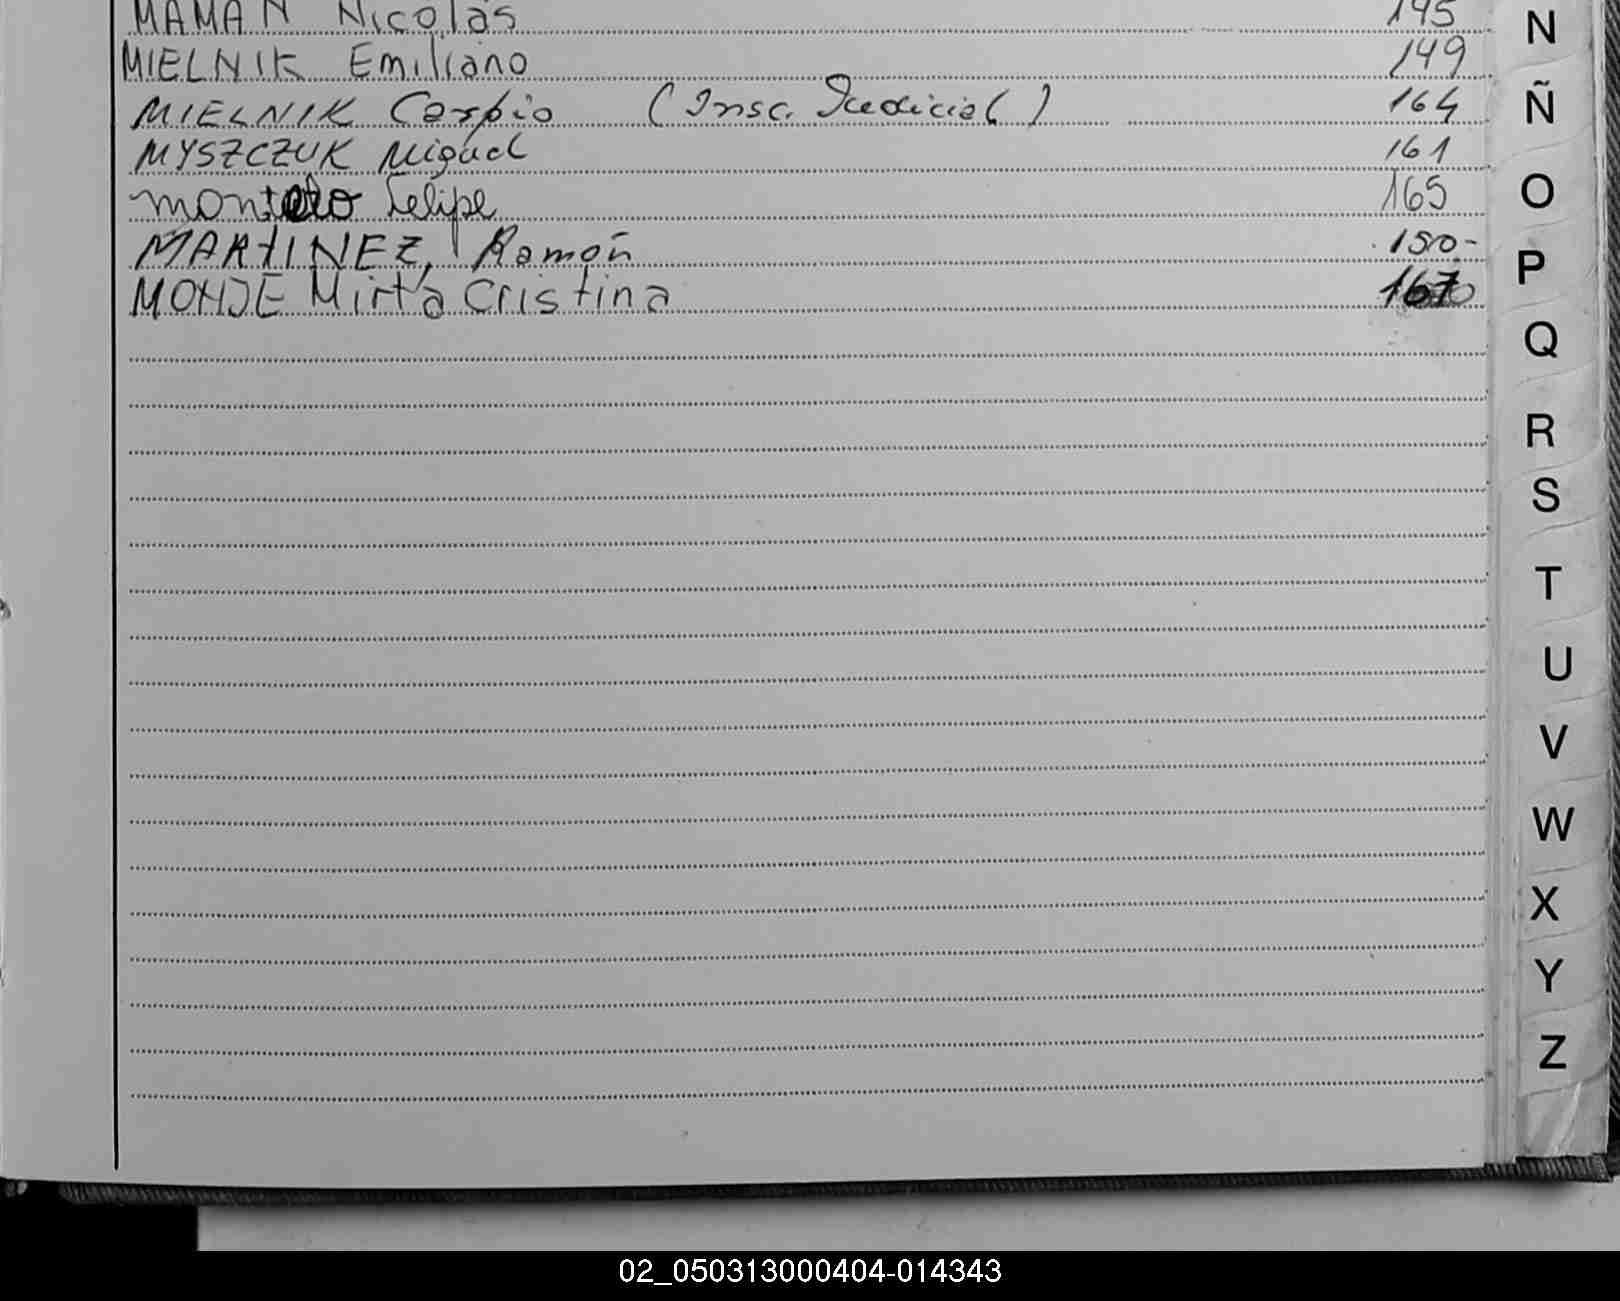 MAMAN Nicolás 145
MIELNIK Emiliano 149
MIELNIK Carpio (Insc. Judicial) 164
MYSZCZUK Miguel 161
Felipe 165
MARTINEZ, Ramón 150-
MONJE Mirta Cristina 167
N
Ñ
O
P
Q
R
S
T
U
V
W
X
Y
Z
02_050313000404-014343